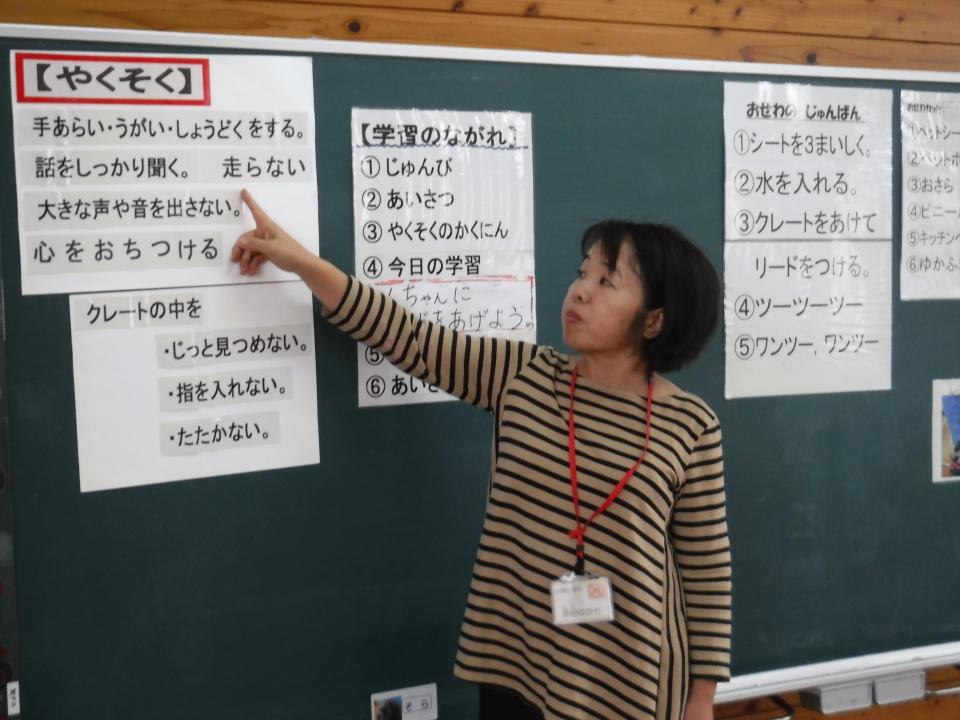 【やくそく】
手あらい・うがい・しょうどくをする。
話をしっかり聞く。 走らない
大きな声や音を出さない。
心をおちつける
クレートの中を
・じっと見つめない。
・指を入れない。
・たたかない。
【学習のながれ】
①じゅんび
②あいさつ
③やくそくのかくにん
④今日の学習
ちゃんに
をあげよう。
⑤
⑥あいさ
おせわの じゅんばん
①シートを3まいしく。
②水を入れる。
③クレートをあけて
リードをつける。
④ツーツーツー
⑤ワンツー,ワンツー
①ペットシー
②ペットボ
③おさら
④ビニー
⑤キッチンペ
⑥ゆかふ
そら